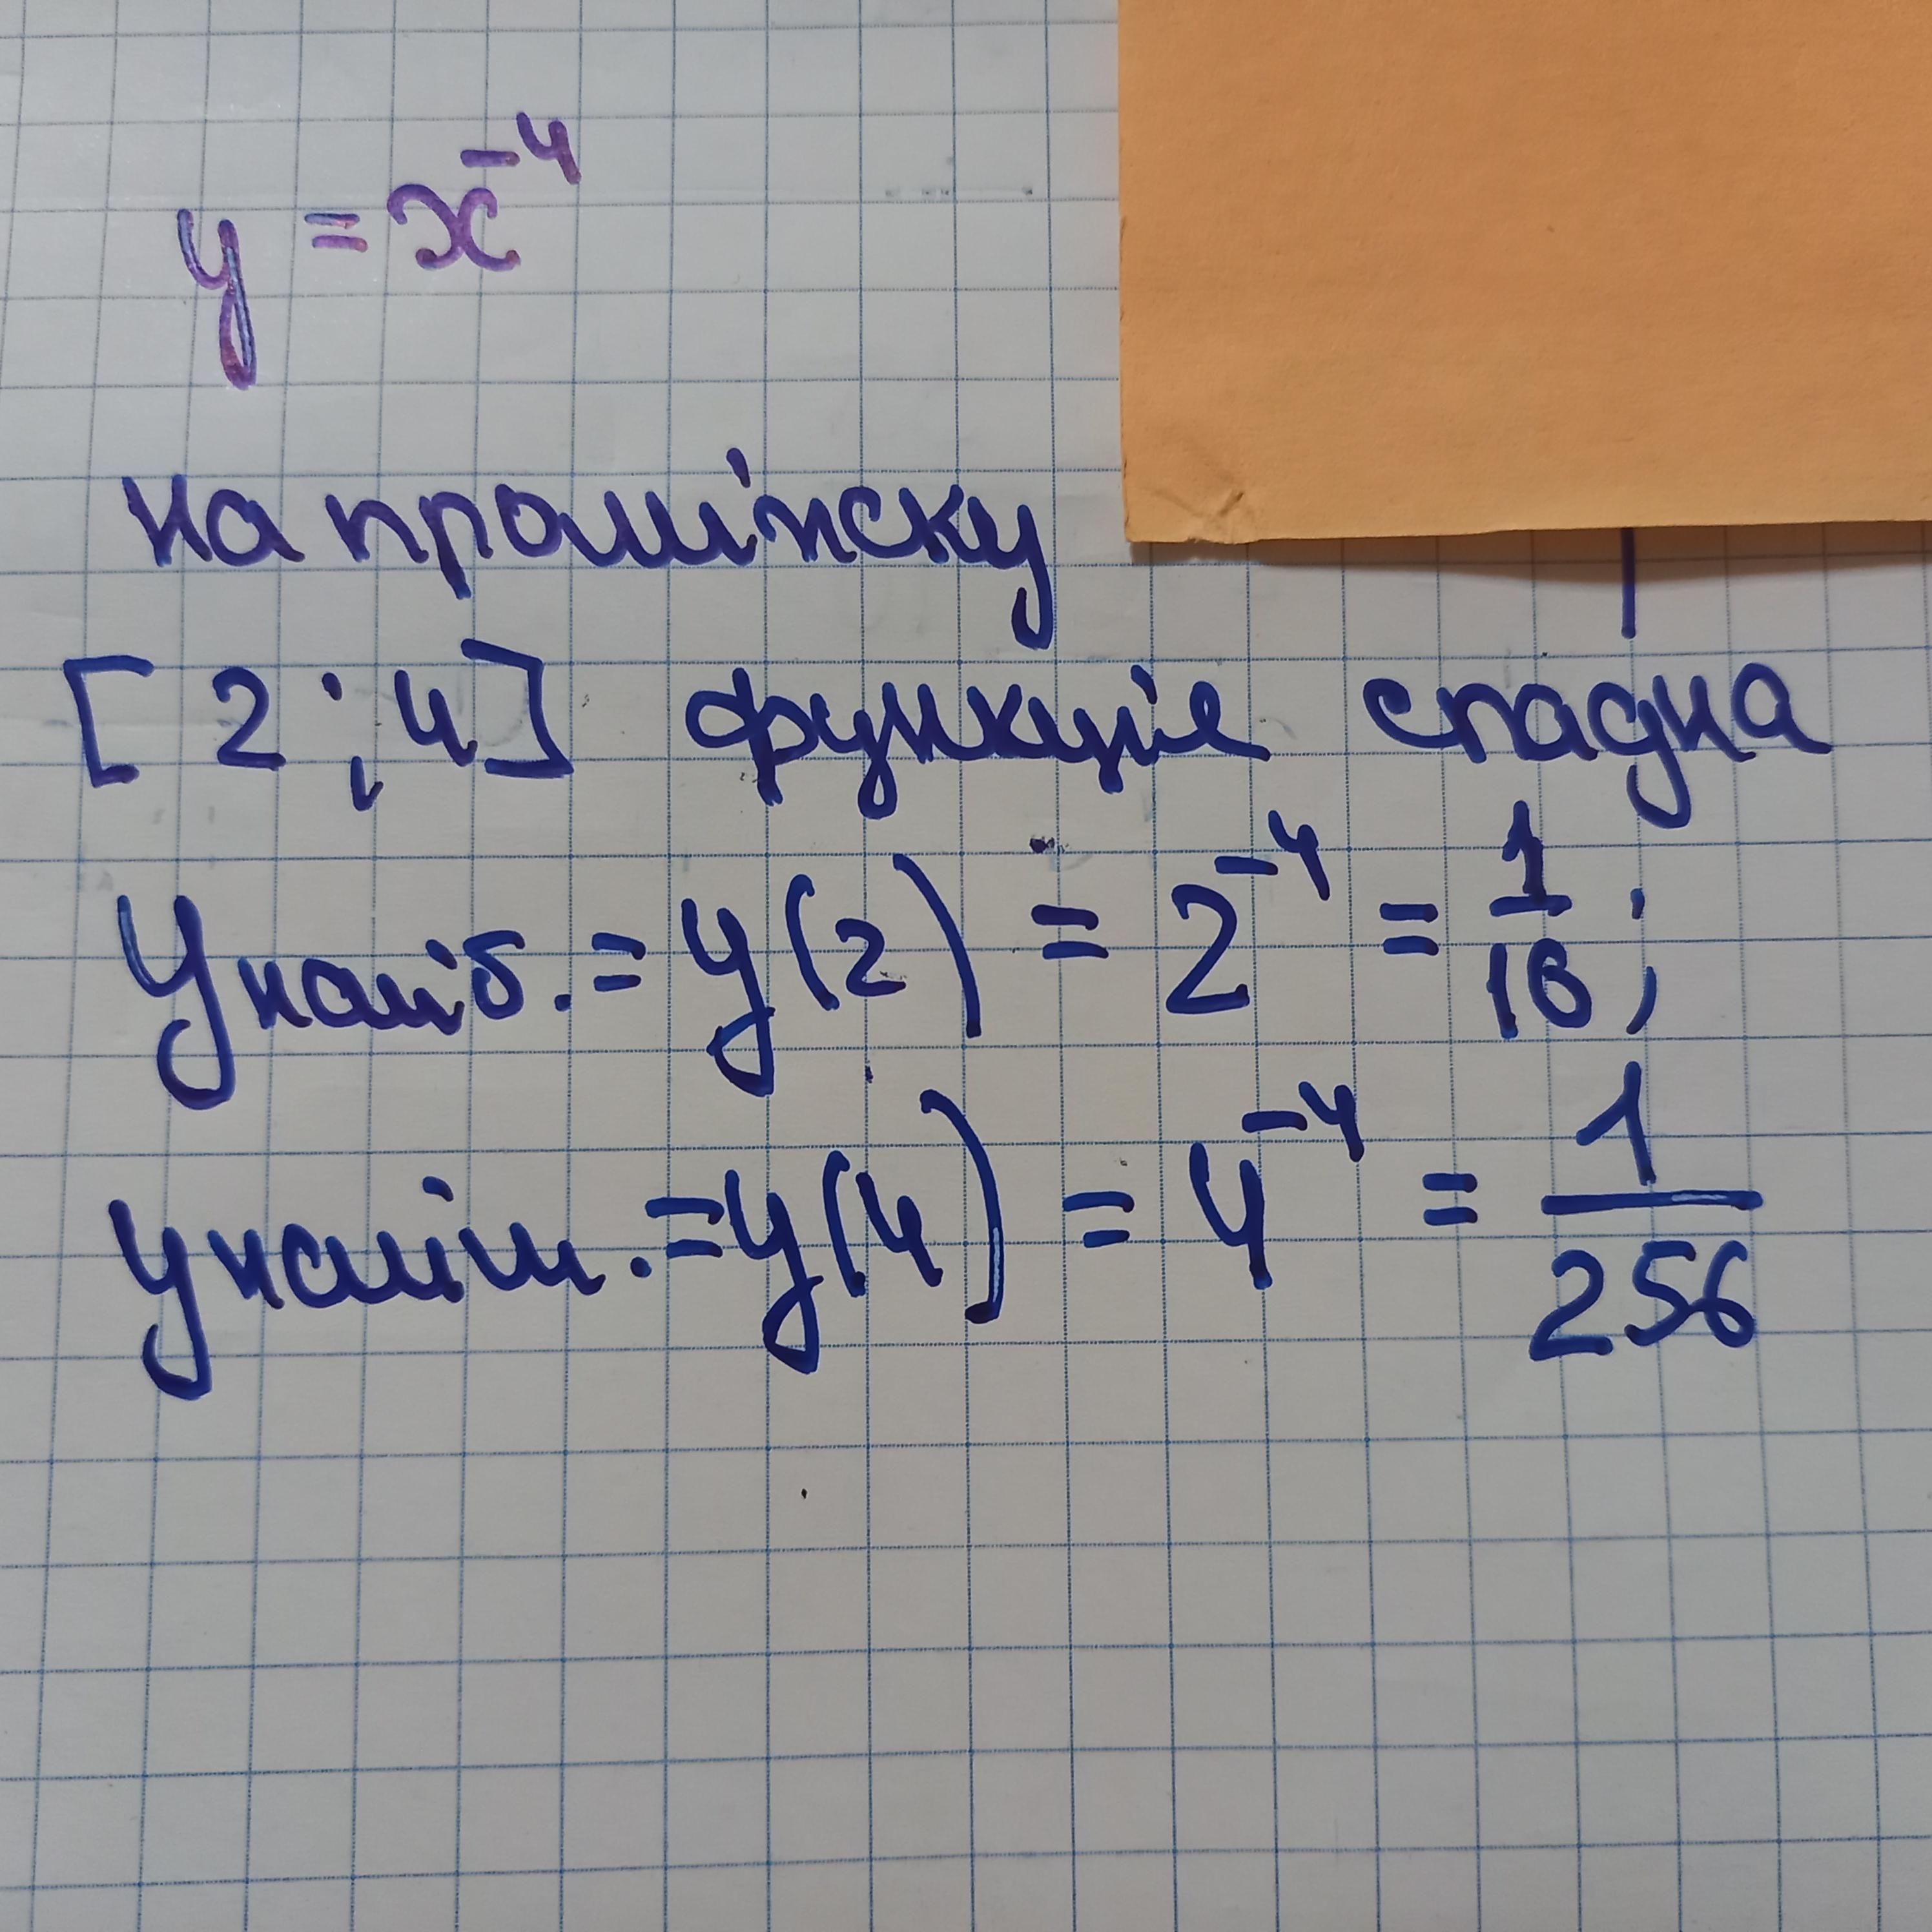 y = x⁻⁴
на проміжку
[2;4] функціє спадна
Yнайб. = y(2) = 2⁻⁴ = 1/16;
yнайм. = y(4) = 4⁻⁴ = 1/256